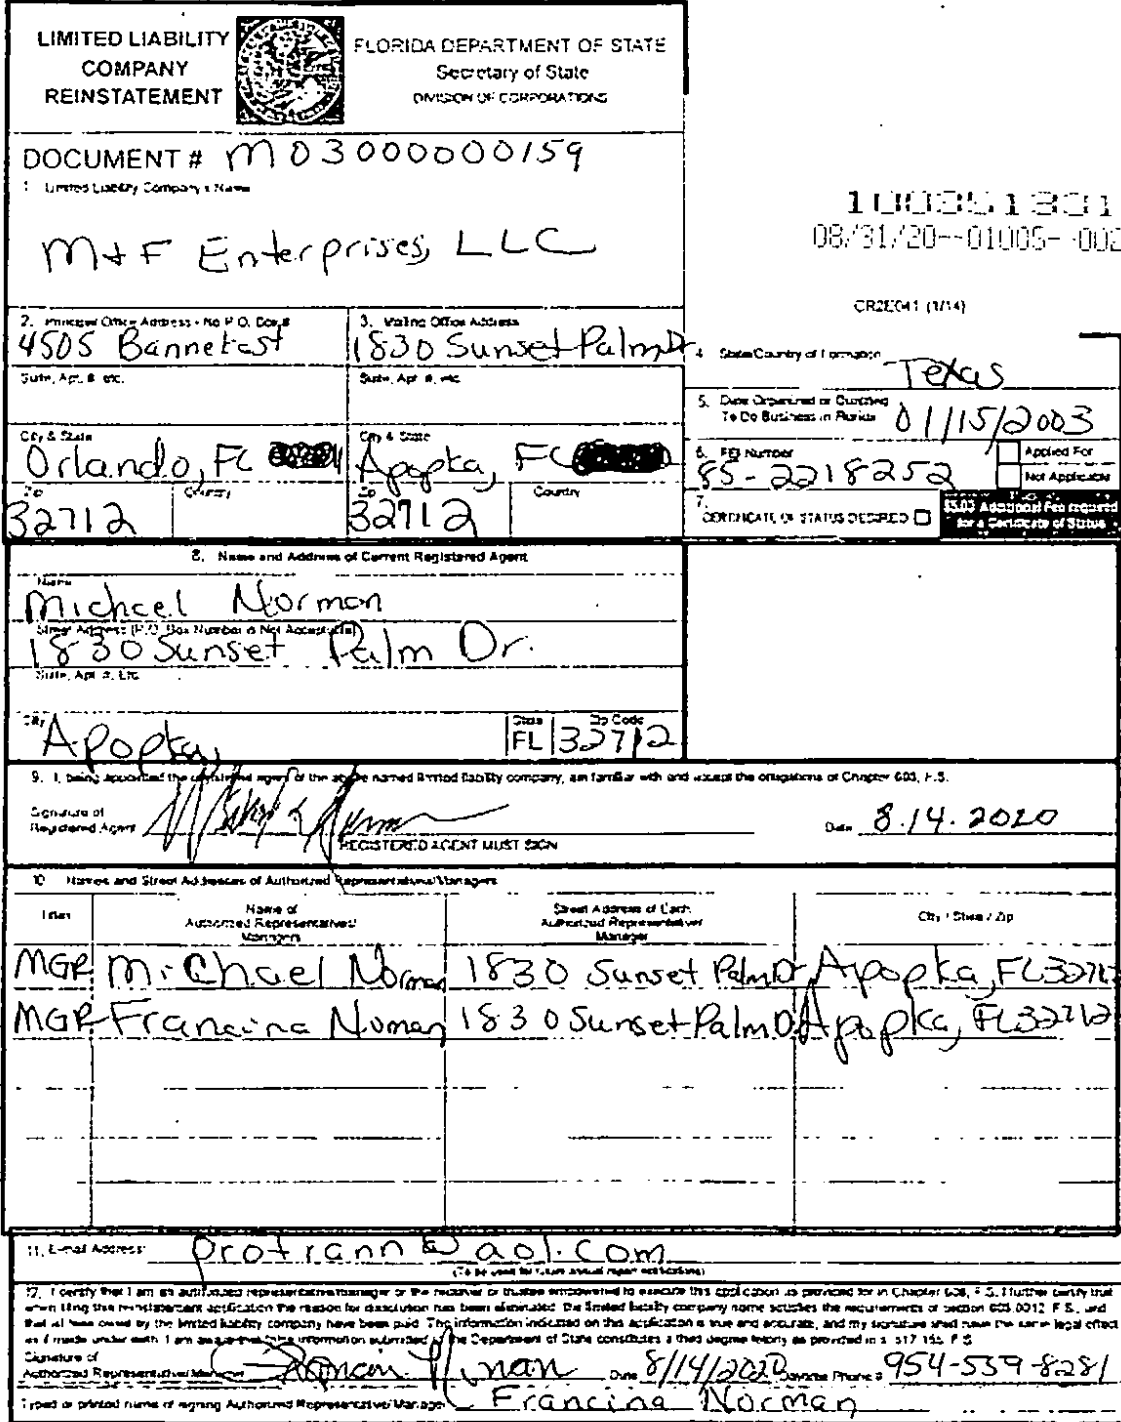 LIMITED LIABILITY
COMPANY
REINSTATEMENT
FLORIDA DEPARTMENT OF STATE
Secretary of State
DIVISION OF CORPORATIONS
DOCUMENT # M03000000159
1. Limited Liability Company's Name
M+F Enterprises, LLC
08/31/20--01005--002
CR2E041 (1/14)
2. Principal Office Address - No P.O. Box #
4505 Bannetast
3. Mailing Office Address
1830 Sunset Palm Dr
4. State/Country of Formation
Texas
Suite, Apt. #, etc.
Suite, Apt. #, etc.
5. Date Organized or Qualified
To Do Business in Florida
01/15/2003
City & State
Orlando, FL
City & State
Apopka, FL
6. FEI Number
85-2218252
Applied For
Not Applicable
Zip
32712
Country
Zip
32712
Country
7. CERTIFICATE OF STATUS DESIRED
$5.00 Additional Fee required
for a Certificate of Status
8. Name and Address of Current Registered Agent
Name
Michael Norman
Street Address (P.O. Box Number is Not Acceptable)
1830 Sunset Palm Dr.
Suite, Apt. #, Etc.
City
Apopka,
State
FL
Zip Code
32712
9. I, being appointed the registered agent of the above named limited liability company, am familiar with and accept the obligations of Chapter 605, F.S.
Signature of
Registered Agent
REGISTERED AGENT MUST SIGN
Date 8.14.2020
10. Names and Street Addresses of Authorized Representatives/Managers
Titles
Name of
Authorized Representatives/
Managers
Street Address of Each
Authorized Representative/
Manager
City / State / Zip
MGR Michael Norman 1830 Sunset Palm Dr Apopka, FL 32712
MGR Francina Noman 1830 Sunset Palm D. Apopka, FL 32712
11. E-mail Address: profrann@aol.com
(To be used for future annual report notifications)
12. I certify that I am an authorized representative/manager or the receiver or trustee empowered to execute this application as provided for in Chapter 605, F.S. I further certify that
when filing this reinstatement application the reason for dissolution has been eliminated, the limited liability company name satisfies the requirements of section 605.0012, F.S., and
that all fees owed by the limited liability company have been paid. The information indicated on this application is true and accurate, and my signature shall have the same legal effect
as if made under oath. I am aware that false information submitted to the Department of State constitutes a third degree felony as provided in s. 817.155, F.S.
Signature of
Authorized Representative/Manager
Date 8/14/2020 Daytime Phone # 954-559-8281
Typed or printed name of signing Authorized Representative/Manager Francina Norman